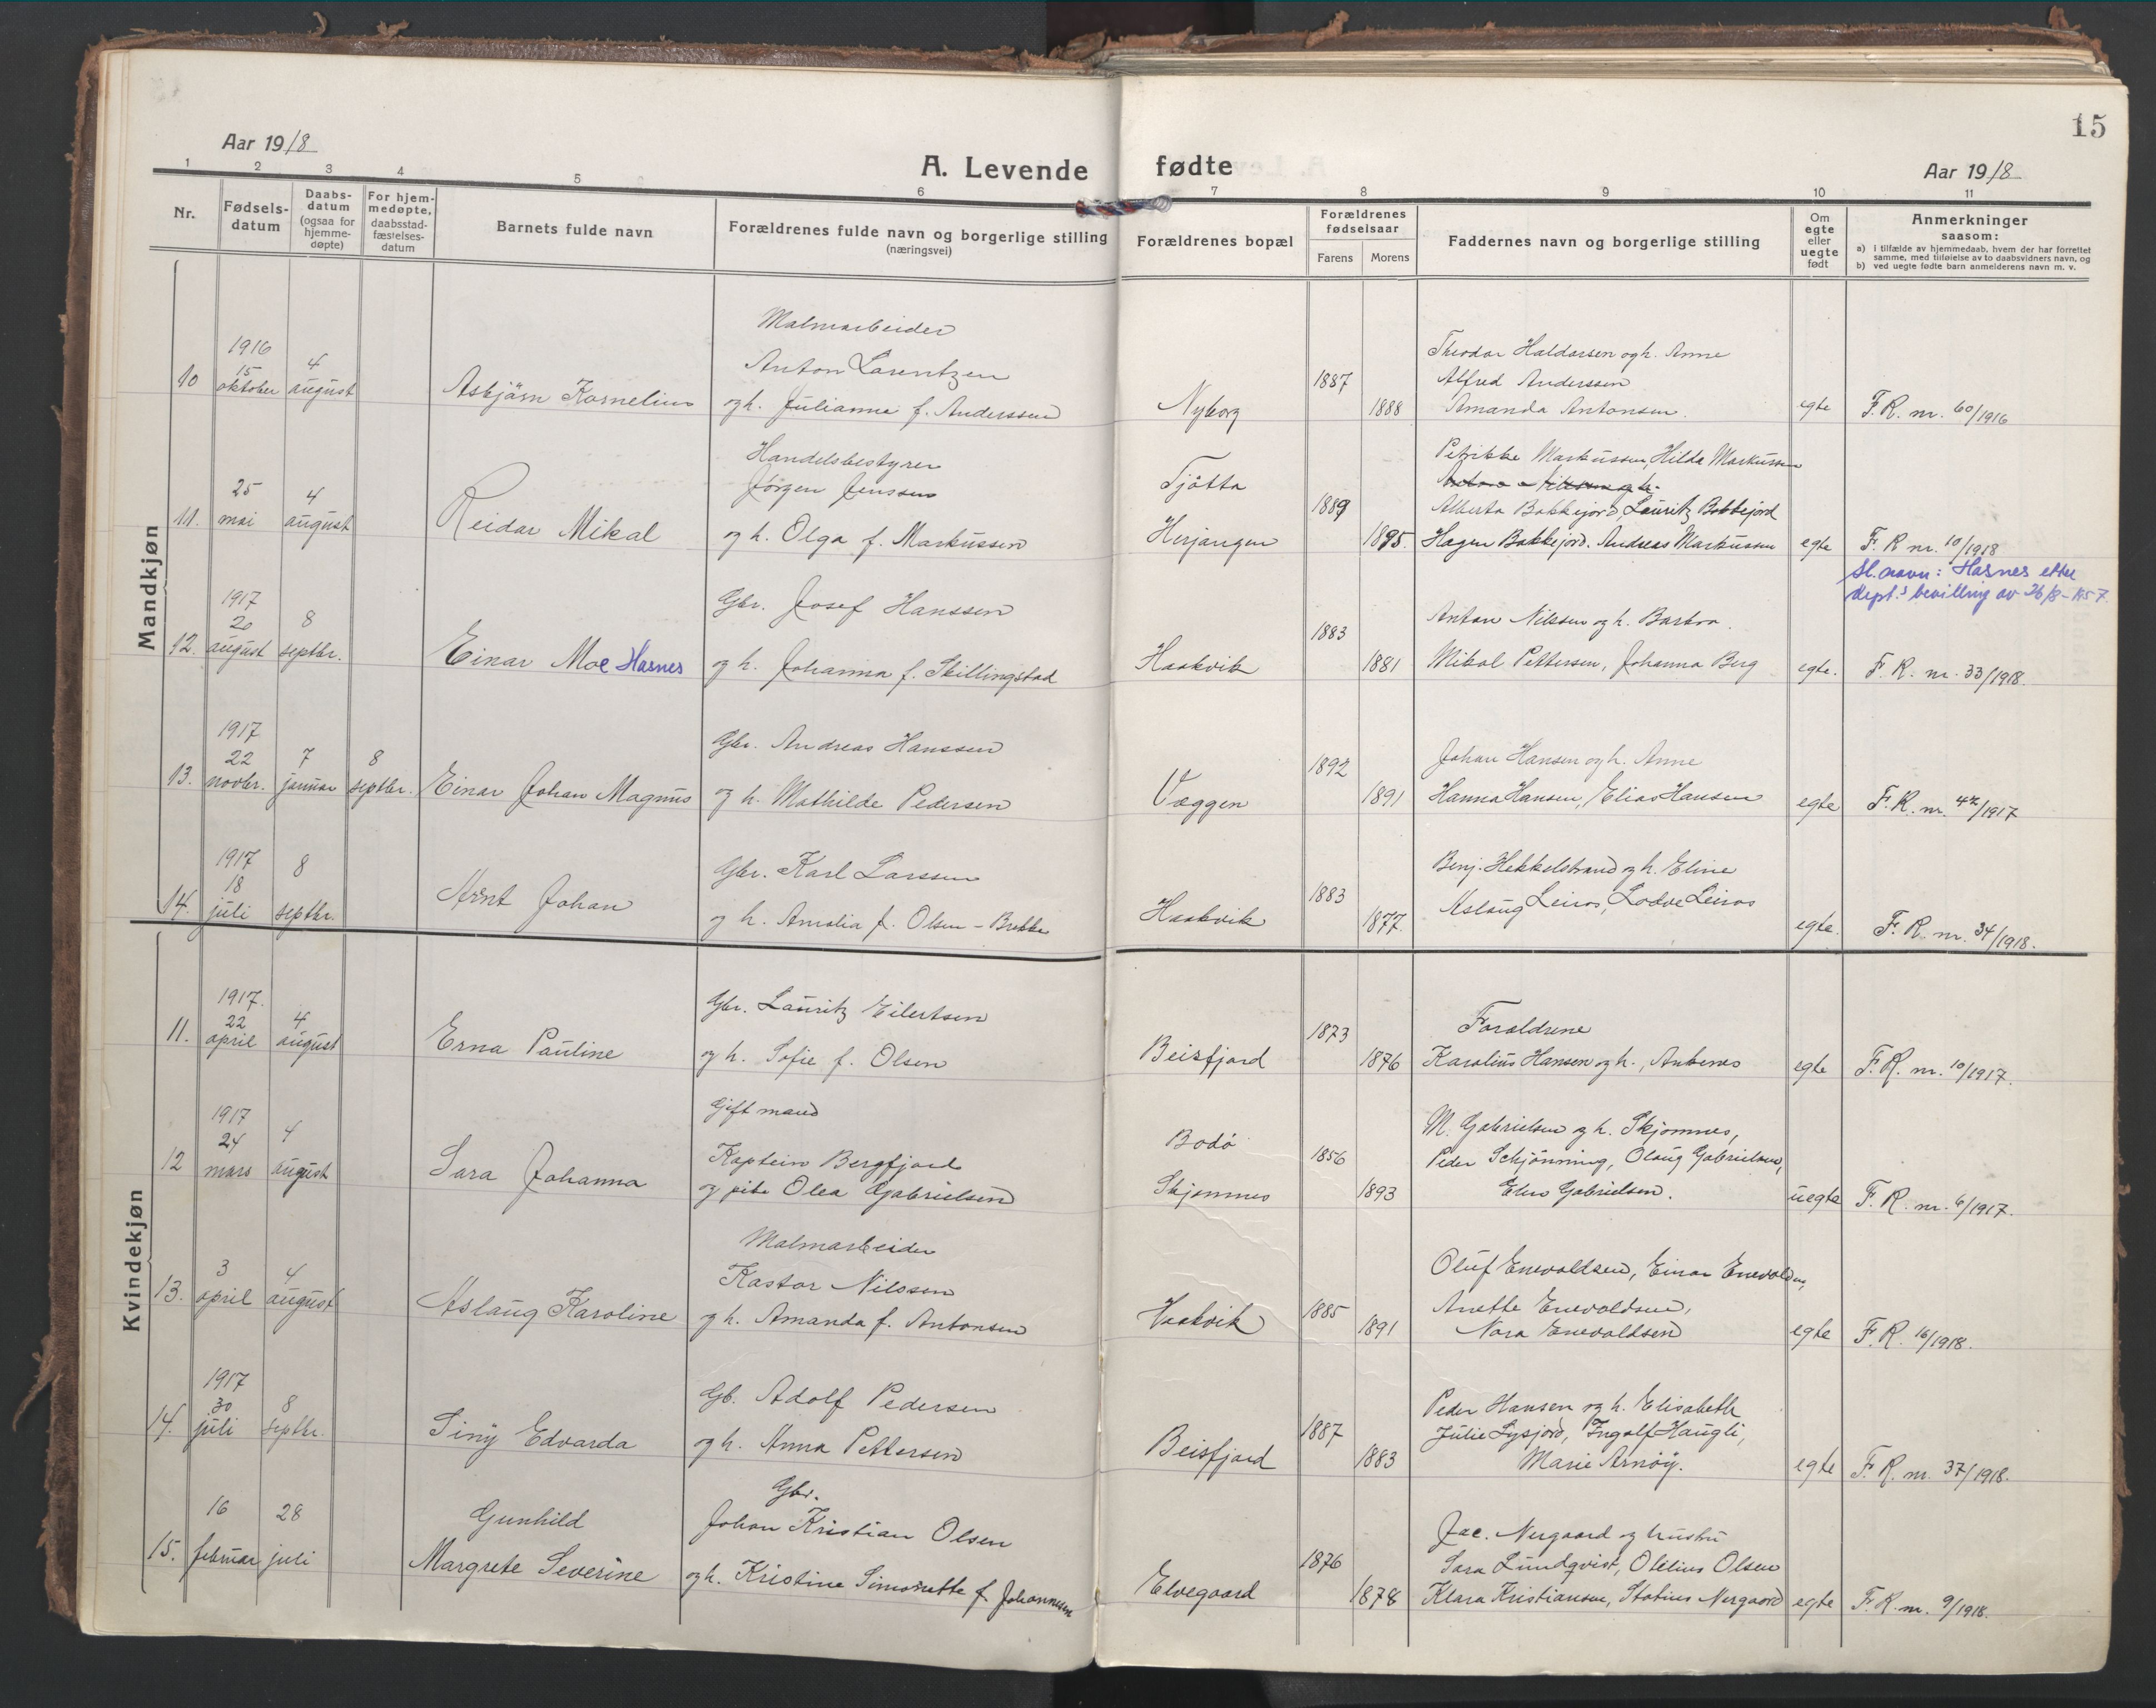 15
Aar 1918
A. Levende fødte
Aar 1918
1 2 3 4 5 6 7 8 9 10 11
Nr.
Fødsels-
datum
Daabs-
datum
(ogsaa for
hjemme-
døpte)
For hjem-
medøpte,
daabsstad-
fæstelses-
datum
Barnets fulde navn
Forældrenes fulde navn og borgerlige stilling
(næringsvei)
Forældrenes bopæl
Forældrenes
fødselsaar
Farens Morens
Faddernes navn og borgerlige stilling
Om
egte
eller
uegte
født
Anmerkninger
saasom:
a) i tilfælde av hjemmedaab, hvem der har forrettet
samme, med tilføielse av to daabsvidners navn, og
b) ved uegte fødte barn anmelderens navn m. v.
Mandkjøn
10
1916
15
oktober
4
august
Asbjörn Kornelius
Malmarbeider
Anton Larentzen
og h. Julianne f. Anderssen
Nyborg
1887
1888
Theodor Haldorsen og h. Anne
Alfred Anderssen
Amanda Antonsen.
egte
F. R. nr. 60/1916
11.
25
mai
4
august
Reidar Mikal
Handelsbestyrer
Jörgen Jenssen
og h. Olga f. Markussen
Tjötta
Herjangen
1889
1895.
Petrikke Markussen, Hilda Markussen
Alberta Bakkejord, Lauritz Bakkejord
Hagen Bakkejord. Andreas Markussen
egte
F. R nr. 10/1918
12.
1917
20
august
8
septbr.
Einar Moe Hasnes
Gbr. Josef Hanssen
og h. Johanna f. Skillingstad
Haakvik
1883
1881
Anton Nilssen og h. Barbra.
Mikal Pettersen, Johanna Berg
egte.
Sl.navn: Hasnes etter
dept.s bevilling av 26/8-1957.
F. R. nr. 33/1918.
13.
1917
22
novbr.
7
januar
8
septbr.
Einar Johan Magnus
Gbr. Andreas Hanssen
og h. Mathilde Pedersen
Væggen
1892
1891
Johan Hansen og h. Anne
Hanna Hansen, Elias Hansen
egte
F. R. nr. 42/1917
14.
1917
18
juli
8
septbr.
Arnt Johan
Gbr. Karl Larssen
og h. Amalia f. Olsen - Brekke
Haakvik
1883
1877.
Benj. Hekkelstrand og h. Eline
Aslaug Leiros, Lodve Leiros
egte.
F. R. nr. 34/1918.
Kvindekjøn
11.
1917.
22
april
4
august
Erna Pauline
Gbr. Lauritz Eilertsen
og h. Sofie f. Olsen
Beisfjord
1873
1876
Forældrene
Karolius Hansen og h., Ankenes
egte
F. R. nr. 10/1917.
12
1917
24
mars
4
august
Sara Johanna
Gift mand
Kaptein Bergfjord
og pike Olea Gabrielsen
Bodö
Skjomnes
1856
1893
M. Gabrielsen og h. Skjomnes,
Peder Schjönning, Olaug Gabrielsen,
Elen Gabrielsen.
uegte
F. R. nr. 6/1917.
13.
3
april
4
august
Aslaug Karoline
Malmarbeider
Kastor Nilssen
og h. Amanda f. Antonsen
Haakvik
1885
1891
Oluf Enevoldsen, Einar Enevoldsen,
Anette Enevoldsen,
Nora Enevoldsen
egte
F. R. 16/1918.
14.
1917
30
juli
8
septbr.
Siny Edvarda
Gb. Adolf Pedersen
og h. Anna Pettersen
Beisfjord
1887
1883
Peder Hansen og h. Elisabeth
Julie Lysjord, Ingolf Haugli,
Marie Arnöy.
egte
F. R. nr. 37/1918.
15.
16
februar
28
juli
Gunhild
Margrete Severine
Gbr.
Johan Kristian Olsen
og h. Kristine Simonette f. Johannesen
Elvegaard
1876
1878
Jac. Nergaard og hustru
Sara Lundqvist, Otelius Olsen
Klara Kristiansen, Statius Nergaard
egte
F. R. nr. 9/1918.